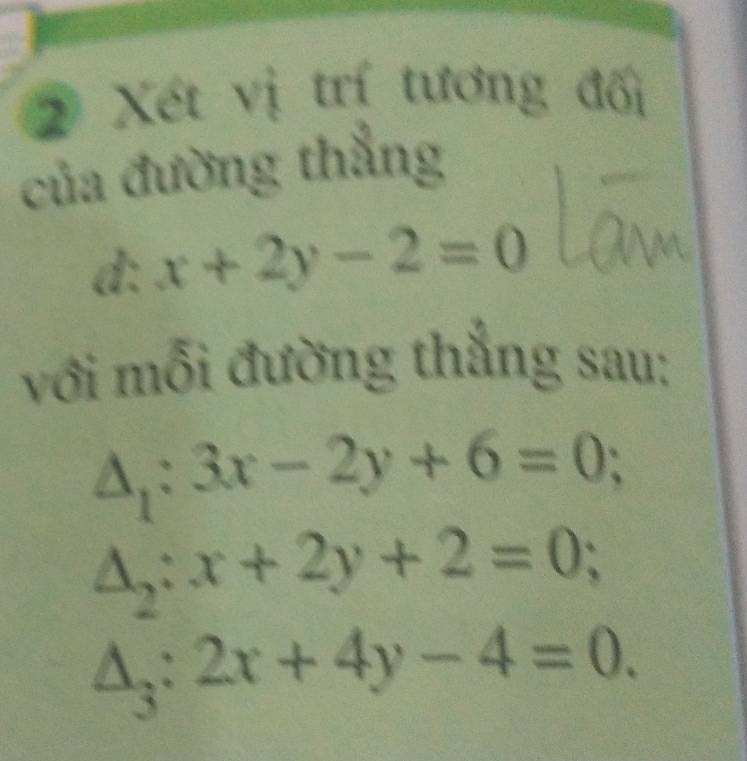 2 Xét vị trí tương đối
của đường thẳng
d: x + 2y − 2 = 0 Làm
với mỗi đường thẳng sau:
Δ₁: 3x − 2y + 6 = 0;
Δ₂: x + 2y + 2 = 0;
Δ₃: 2x + 4y − 4 = 0.